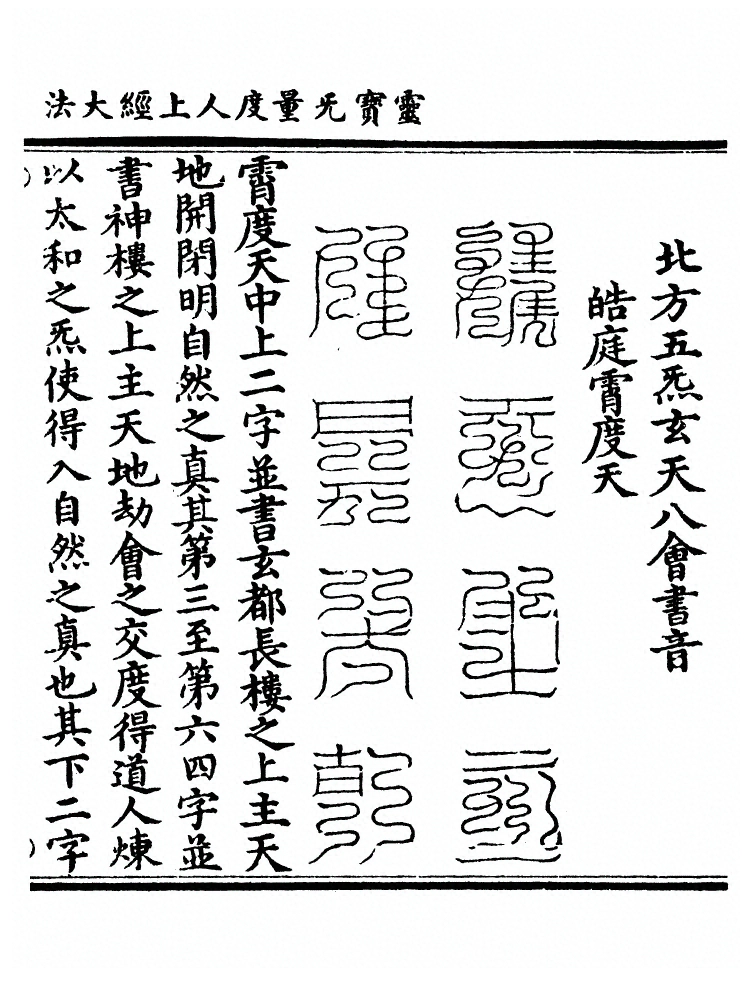 靈寶无量度人上經大法
北方五炁玄天八會書音
皓庭霄度天
霄度天中上二字並書玄都長樓之上主天
地開閉明自然之真其第三至第六四字並
書神樓之上主天地劫會之交度得道人煉
以太和之炁使得入自然之真也其下二字